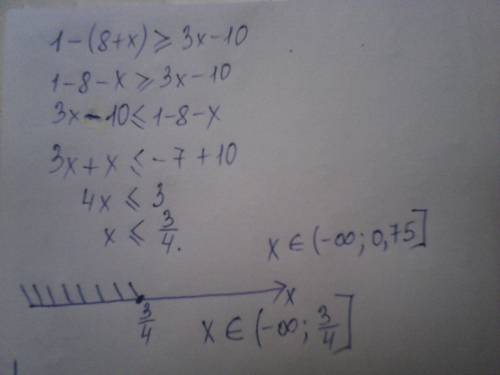 1-(8+x)⩾3x-10
1-8-x⩾3x-10
3x-10⩽1-8-x
3x+x⩽-7+10
4x⩽3
x⩽3/4.
x∈(-∞;0,75]
x
3/4
x∈(-∞;3/4]